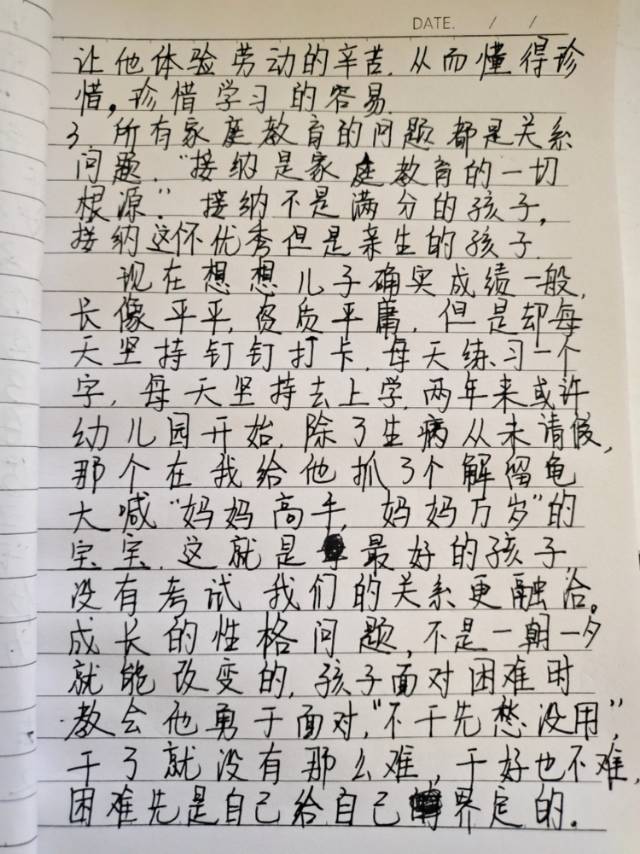 DATE. / /
让他体验劳动的辛苦.从而懂得珍
惜。珍惜学习的容易.
3 所有家庭教育的问题都是关系
问题."接纳是家庭教育的一切
根源." 接纳不是满分的孩子,
接纳这怀优秀但是亲生的孩子.
现在想想儿子确实成绩一般,
长像平平,资质平庸,但是却每
天坚持钉钉打卡,每天练习一个
字,每天坚持去上学,两年来或许
幼儿园开始,除了生病从未请假,
那个在我给他抓了个解留龟
大喊"妈妈高手,妈妈万岁"的
宝宝.这就是最好的孩子
没有考试我们的关系更融洽。
成长的性格问题,不是一朝一夕
就能改变的,孩子面对困难时
教会他勇于面对,"不干先愁没用",
干了就没有那么难,干好也不难,
困难先是自己给自己界定的.